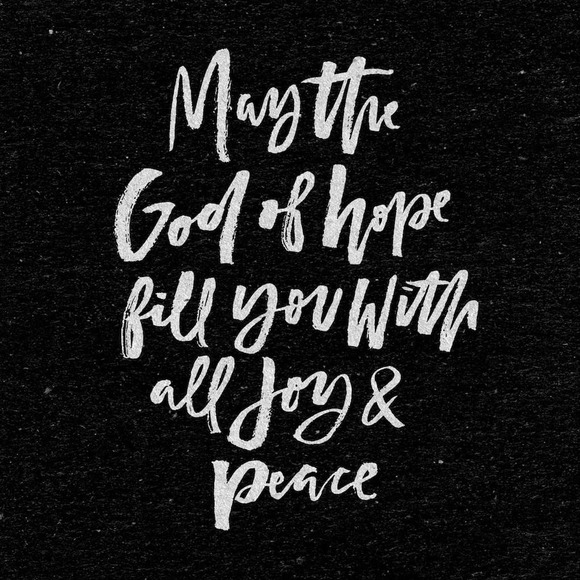 May the
God of hope
fill you with
all Joy &
peace